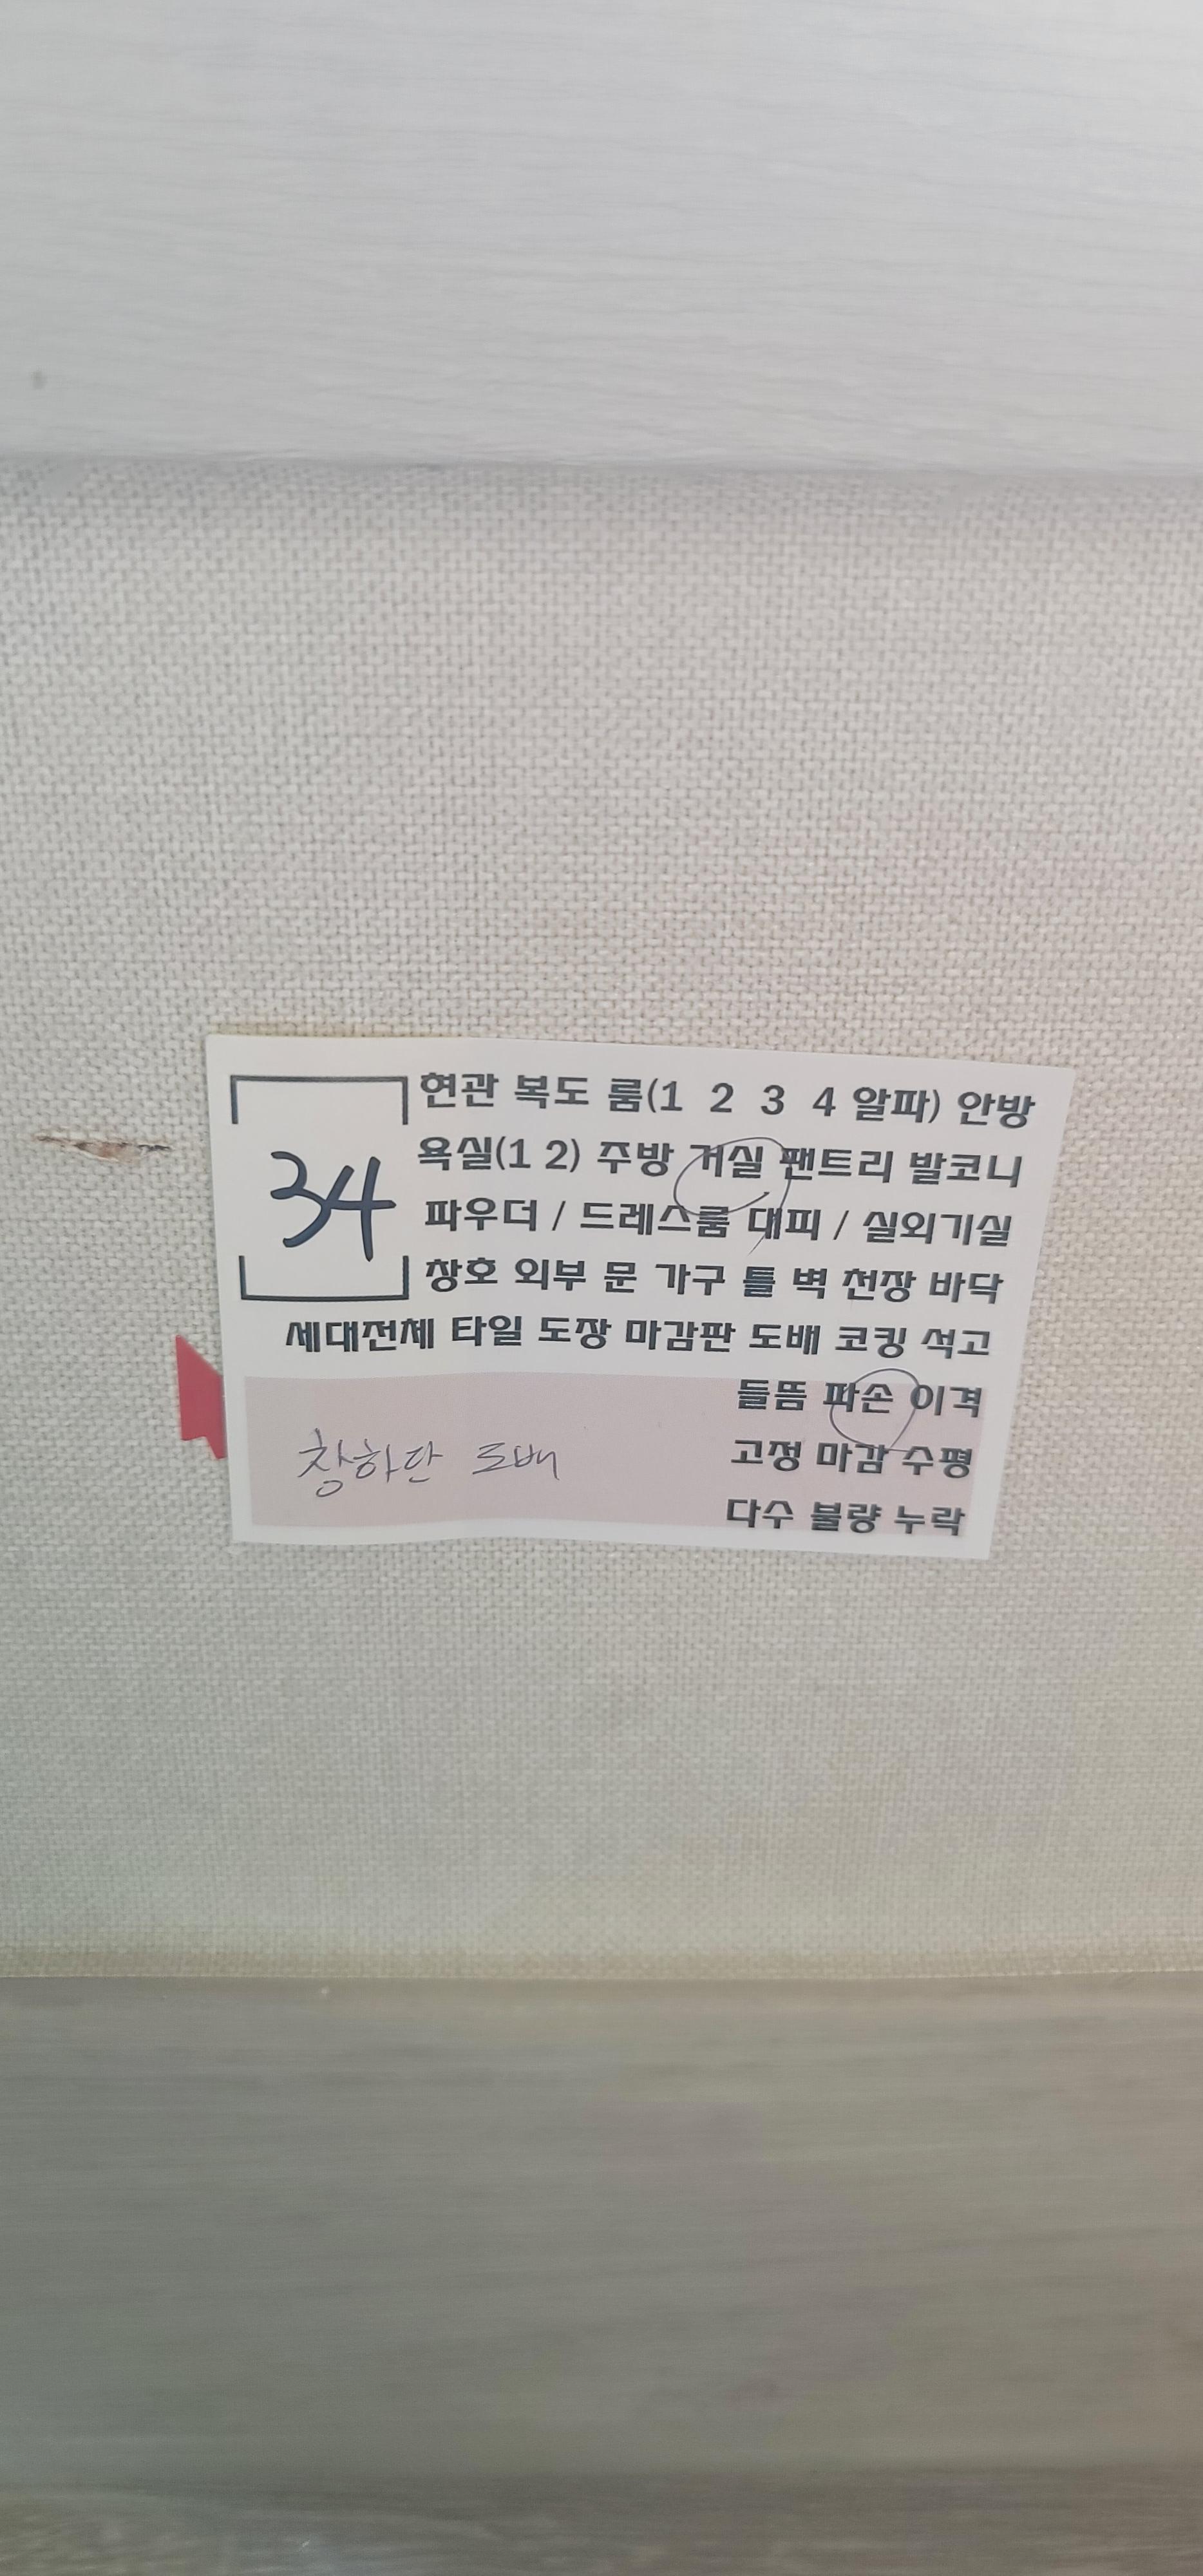 현관 복도 룸(1 2 3 4 알파) 안방
욕실(1 2) 주방 거실 팬트리 발코니
34
파우더 / 드레스룸 대피 / 실외기실
창호 외부 문 가구 틀 벽 천장 바닥
세대전체 타일 도장 마감판 도배 코킹 석고
들뜸 파손 이격
창하단 도배
고정 마감 수평
다수 불량 누락